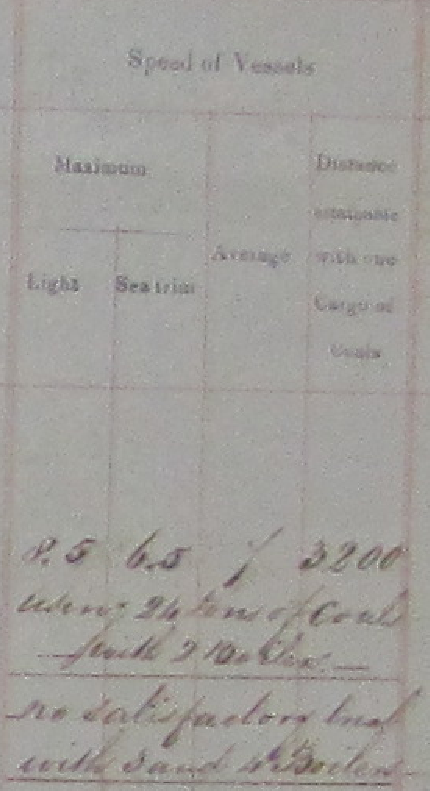 Speed of Vessels
Maximum
Light
Sea trim
Average
Distance
attainable
with one
Cargo of
Coals
8.5 6.5 7 3200
using 24 tons of Coals
with 2 Boilers
no satisfactory trial
with 3 and 4 Boilers